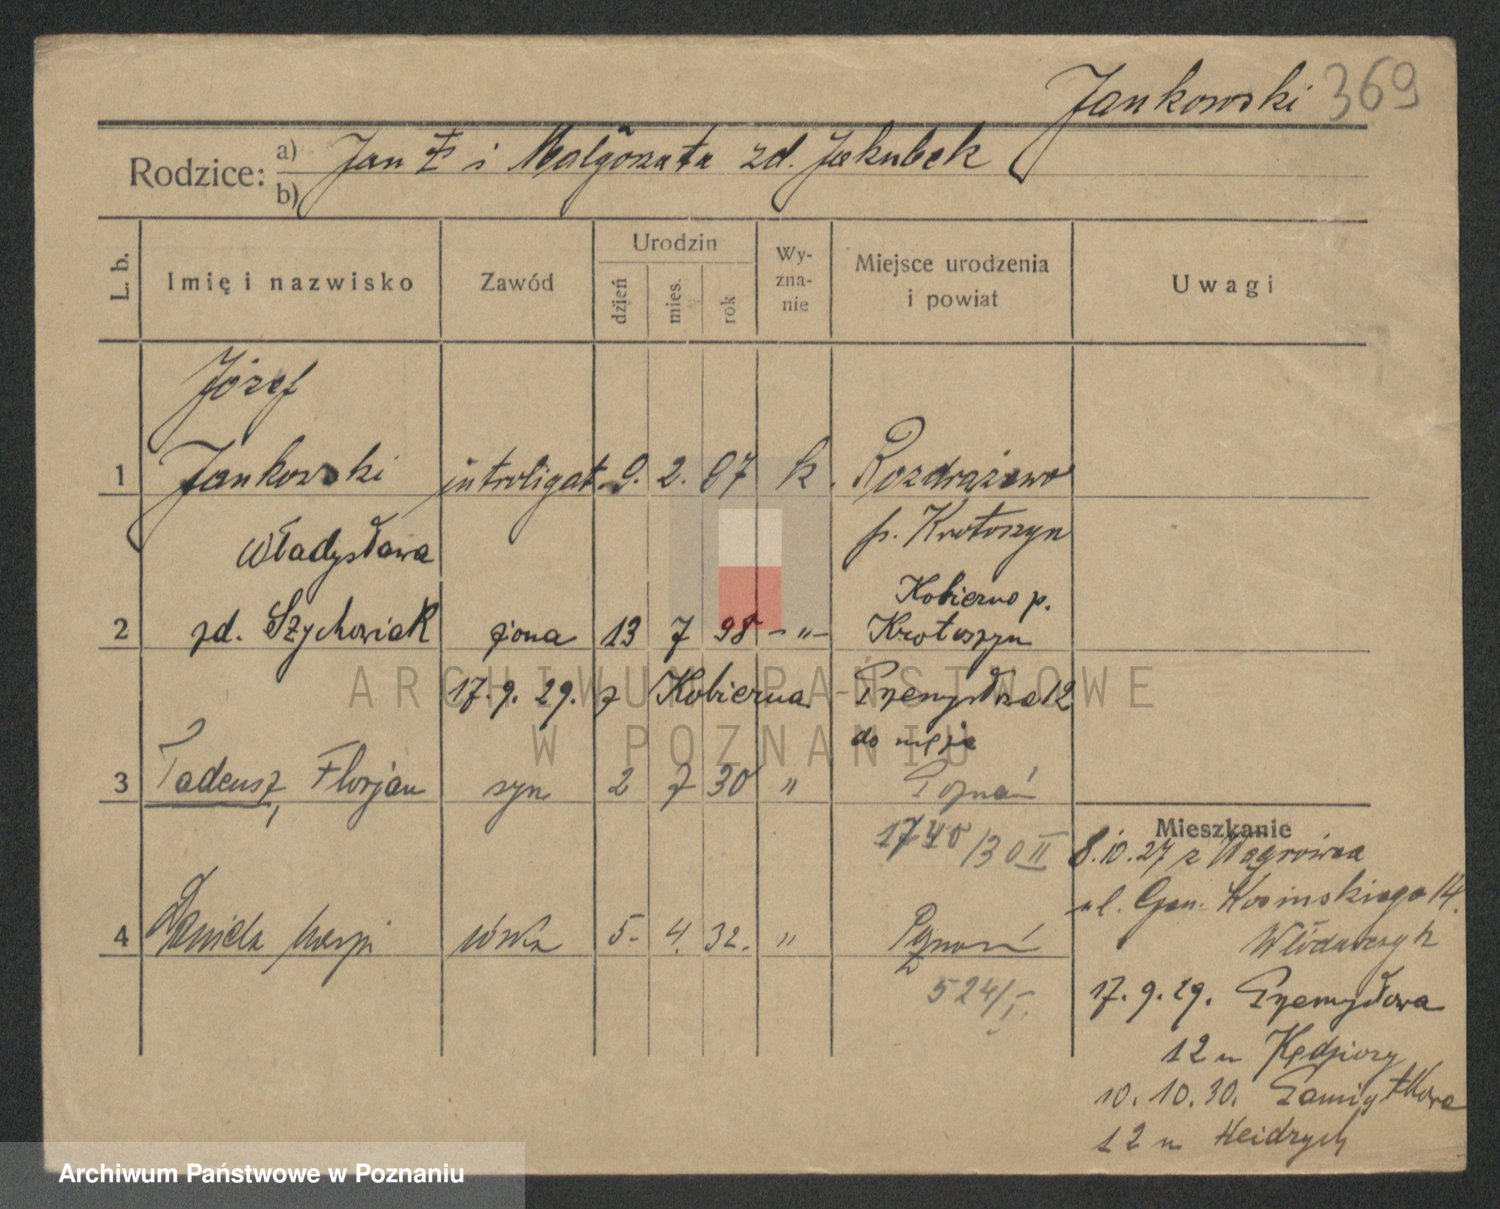 Jankowski 369
Rodzice: a) Jan i Małgorzata zd. Jakubek
b)
L. b. Imię i nazwisko Zawód Urodzin dzień mies. rok Wy-zna-nie Miejsce urodzenia i powiat Uwagi
Józef
1 Jankowski introligat. 9. 2. 07 k. Rozdrażewo
p. Krotoszyn
Władysława
Kobierno p.
2 zd. Szychowiak żona 13 7 98 -"- Krotoszyn
17.9.29. z Kobierna Przemysłowa 12
do męża
3 Tadeusz, Florjan syn 2 7 30 " Poznań
1740/30 II
4 Daniela córka 5. 4. 32. " Poznań
524/I.
Mieszkanie
8.10.27 z Wągrówca
ul. Gen. Kosinskiego 14.
Włodarczyk
17.9.29. Przemysłowa
12 u Kędziory
10.10.30. Pamiątkowa
12 u Heidrych
ARCHIWUM PAŃSTWOWE
W POZNANIU
Archiwum Państwowe w Poznaniu